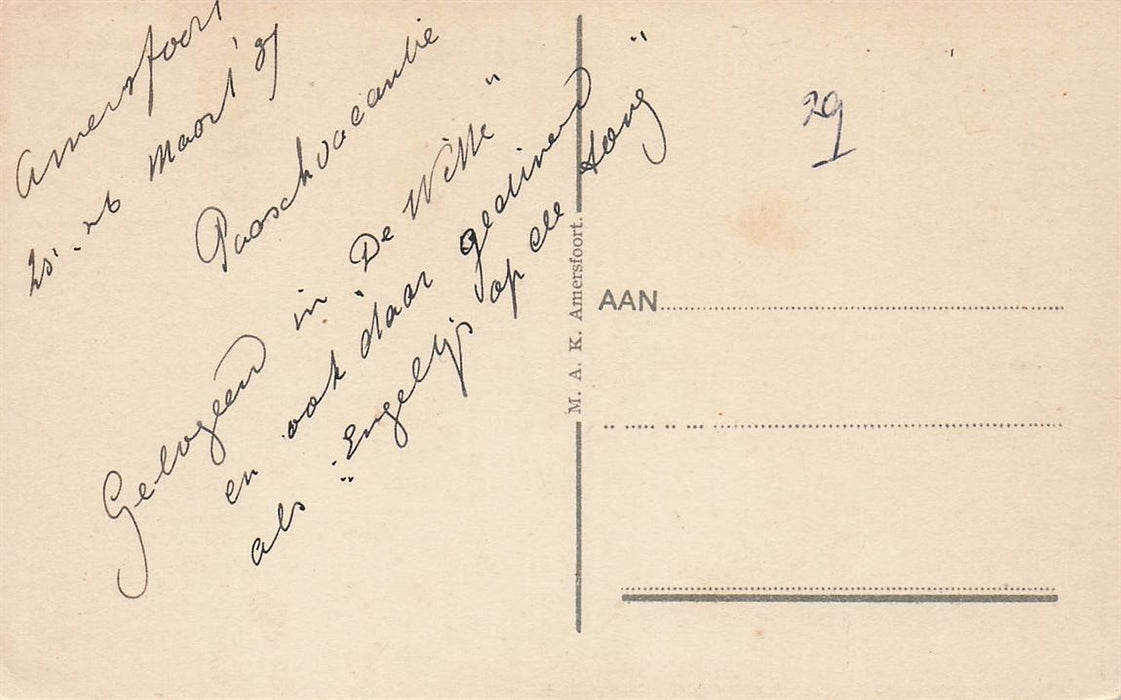 Amersfoort
25-26 Maart '37
Paaschvacantie
Gelogeerd in "De Witte"
en ook daar gedineerd
als "Engeltjes op de tong"
29
M. A. K. Amersfoort.
AAN